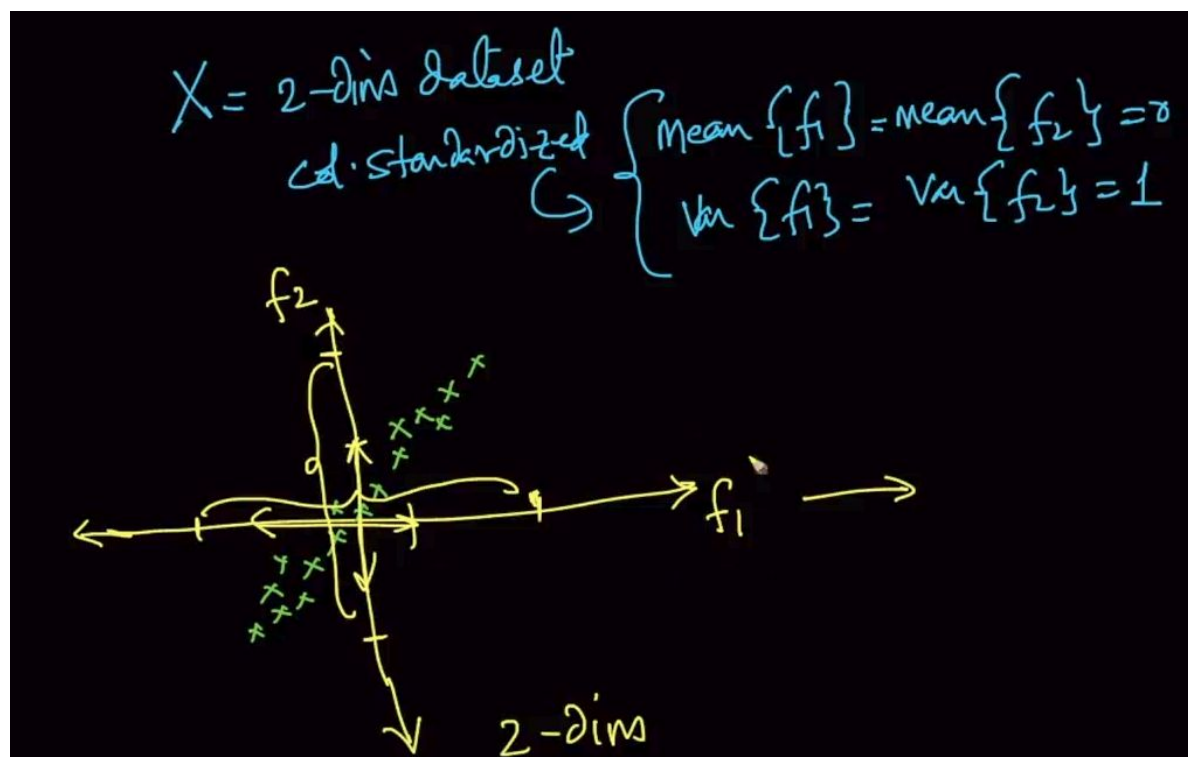 X = 2-dim dataset
col. standardized { mean {f1} = mean {f2} = 0
var {f1} = var {f2} = 1
f2
f1
2-dim